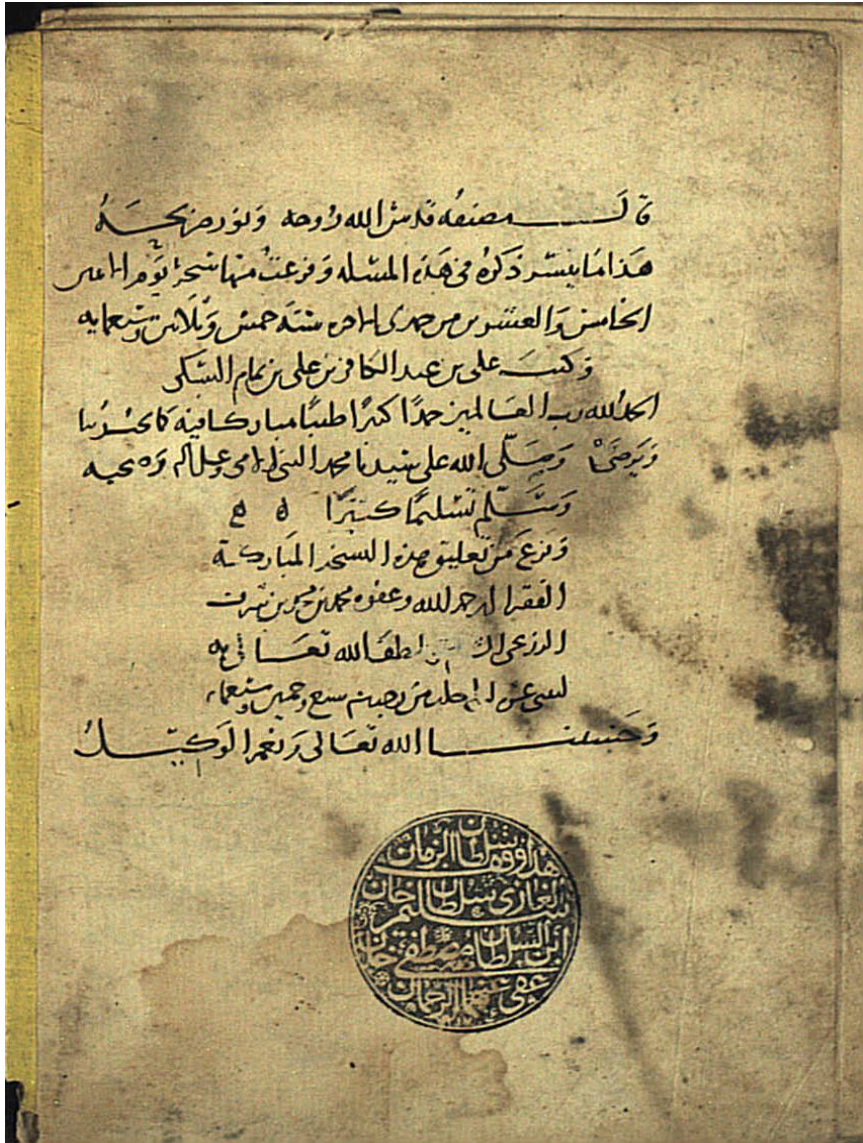 قال مصنفه قدس الله روحه ونور ضريحه
هذا ما تيسر ذكره في هذه المسئله وفرغت منها سحر يوم الاثنين
الخامس والعشرين من جمدى الاخره سنة خمس وثلاثين وسبعمايه
وكتب علي بن عبد الكافي بن علي بن تمام السبكي
الحمد لله رب العالمين حمدا كثيرا طيبا مباركا فيه كما يحب ربنا
ويرضى وصلى الله على سيدنا محمد النبي الامي وعلى اله وصحبه
وسلم تسليما كثيرا
وفرغ من تعليق هذه النسخه المباركة
الفقير الى رحمة الله وعفوه محمد بن بن شرف
الزرعي لطف الله تعالى به
من رجب سنه سبع وخمسين وسبعمايه
وحسبنا الله تعالى ونعم الوكيل
هذا وقف سلطان الزمان
الغازي سلطان سليم خان
ابن السلطان مصطفى خان
عفى عنهما الرحمان